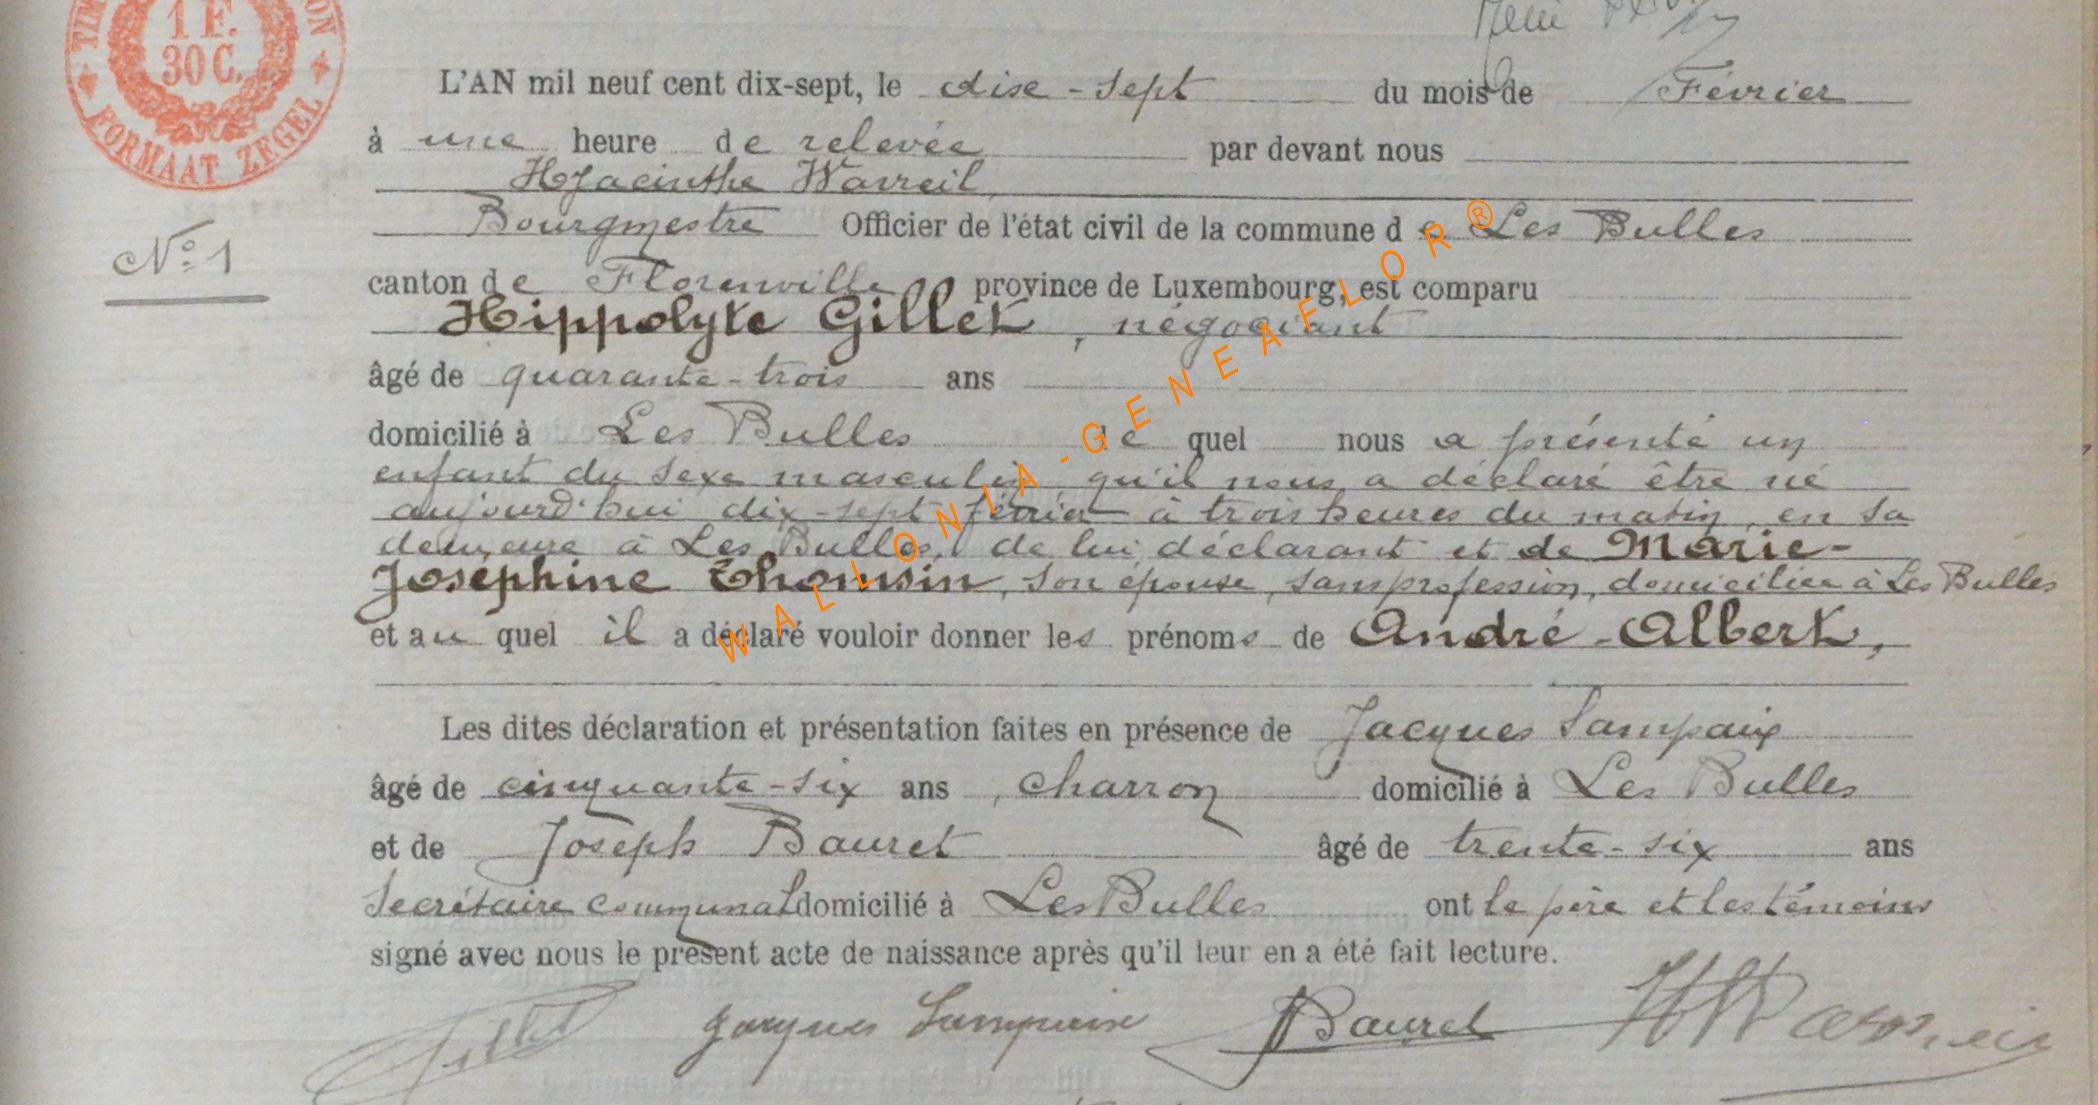 1 F.
30 C.
FORMAAT ZEGEL
L'AN mil neuf cent dix-sept, le dise-sept du mois de Février
à une heure de relevée par devant nous
Hyacinthe Warreil,
Bourgmestre Officier de l'état civil de la commune de Les Bulles
N° 1
canton de Florenville province de Luxembourg, est comparu
Hippolyte Gillet, négociant
âgé de quarante-trois ans
domicilié à Les Bulles le quel nous a présenté un
enfant du sexe masculin qu'il nous a déclaré être né
aujourd'hui dix-sept février à trois heures du matin, en sa
demeure à Les Bulles, de lui déclarant et de Marie-
Joséphine Thomsin, son épouse, sans profession, domiciliée à Les Bulles
et au quel il a déclaré vouloir donner les prénoms de André-Albert,
Les dites déclaration et présentation faites en présence de Jacques Lampaix
âgé de cinquante-six ans, charron domicilié à Les Bulles
et de Joseph Bauret âgé de trente-six ans
Secrétaire communal domicilié à Les Bulles ont le père et les témoins
signé avec nous le présent acte de naissance après qu'il leur en a été fait lecture.
Gillet Jacques Lampaix Bauret H Warreil
WALLONIA-GENEAFLOR®